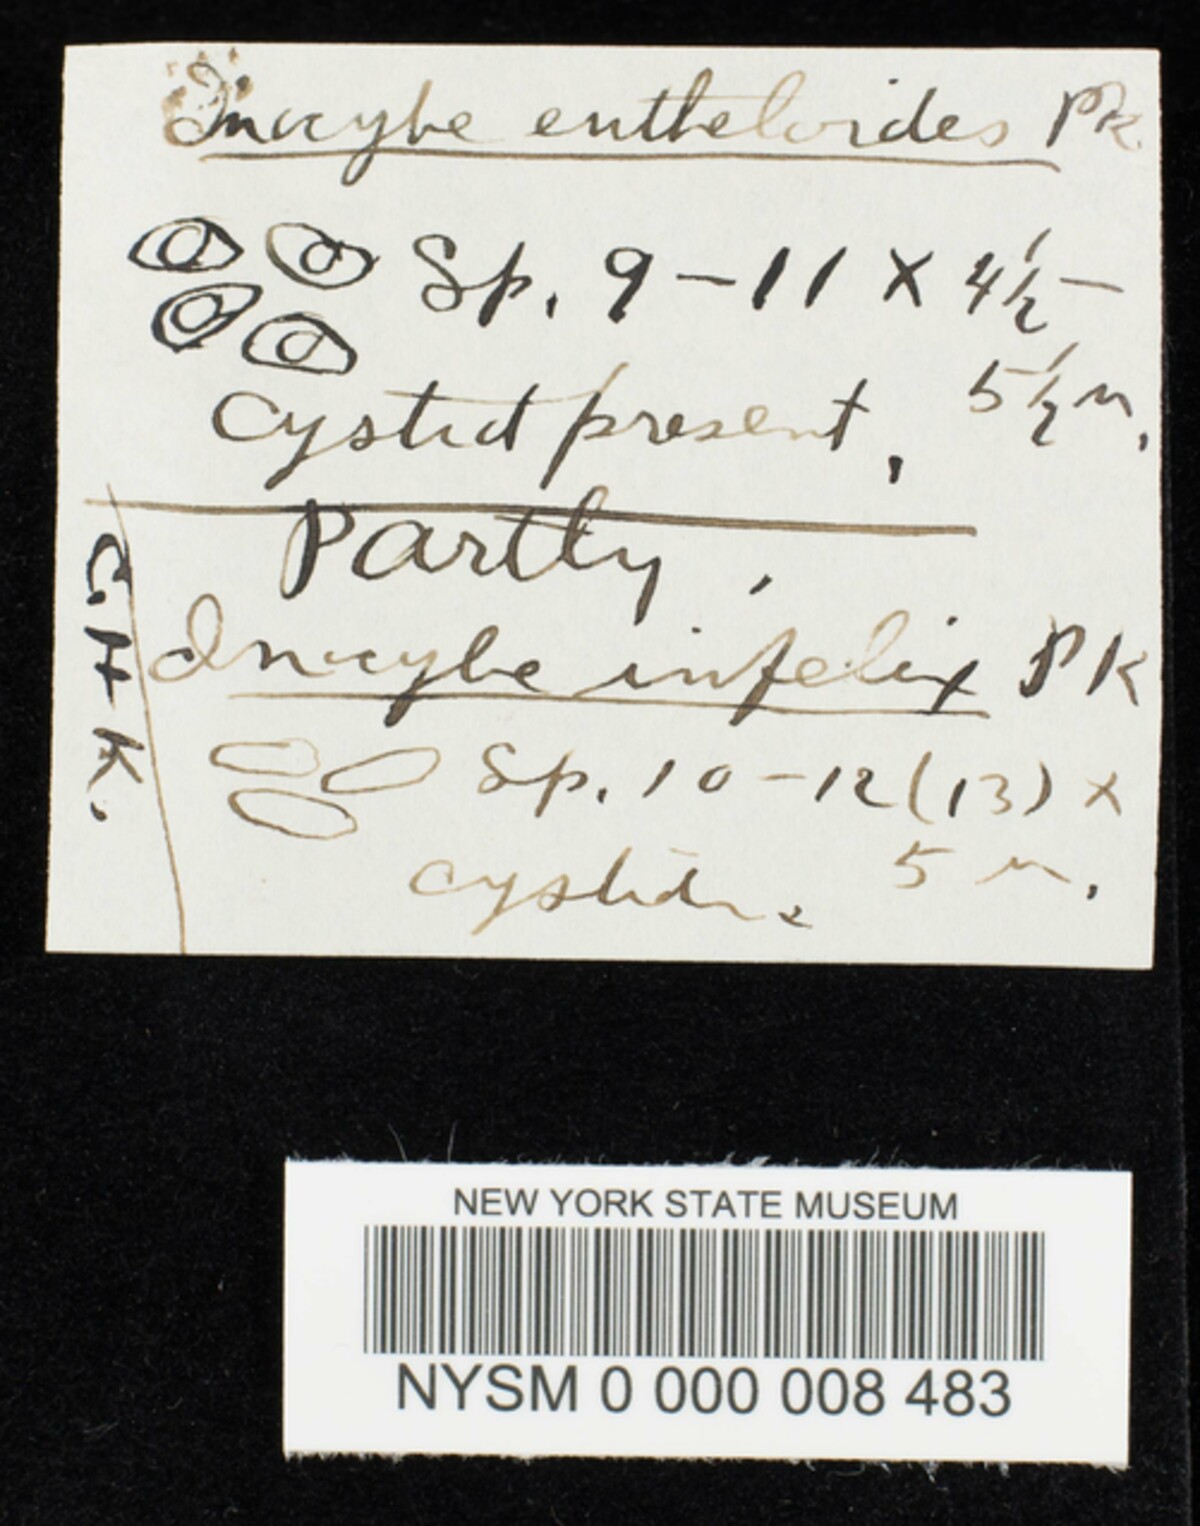 Inocybe eutheloides Pk.
Sp. 9-11 X 4½-
5½ u.
Cystid present.
Partly,
Inocybe infelix PK
Sp. 10-12(13) x
5 u.
cystidia
C. H. K.
NEW YORK STATE MUSEUM
NYSM 0 000 008 483